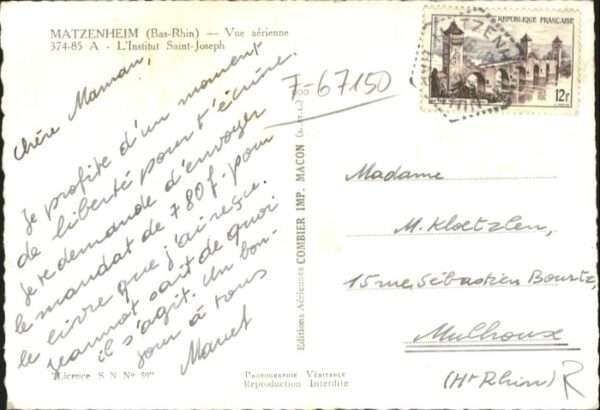 MATZENHEIM (Bas-Rhin) — Vue aérienne
374-85 A - L'Institut Saint-Joseph
Chère Maman,
Je profite d'un moment
de liberté pour t'écrire.
Je te demande d'envoyer
le mandat de 780f. pour
le livre que j'ai reçu.
Jeannot sait de quoi
il s'agit. Un bon-
jour à tous
Marcel
Licence S N N°
PHOTOGRAPHIE VÉRITABLE
Reproduction Interdite
Editions Aériennes COMBIER IMP. MACON
7-67150
RÉPUBLIQUE FRANÇAISE
12f
Madame
M. Kloetzlen,
15 rue Sébastien Bourtz,
Mulhouse
(Ht Rhin)
R